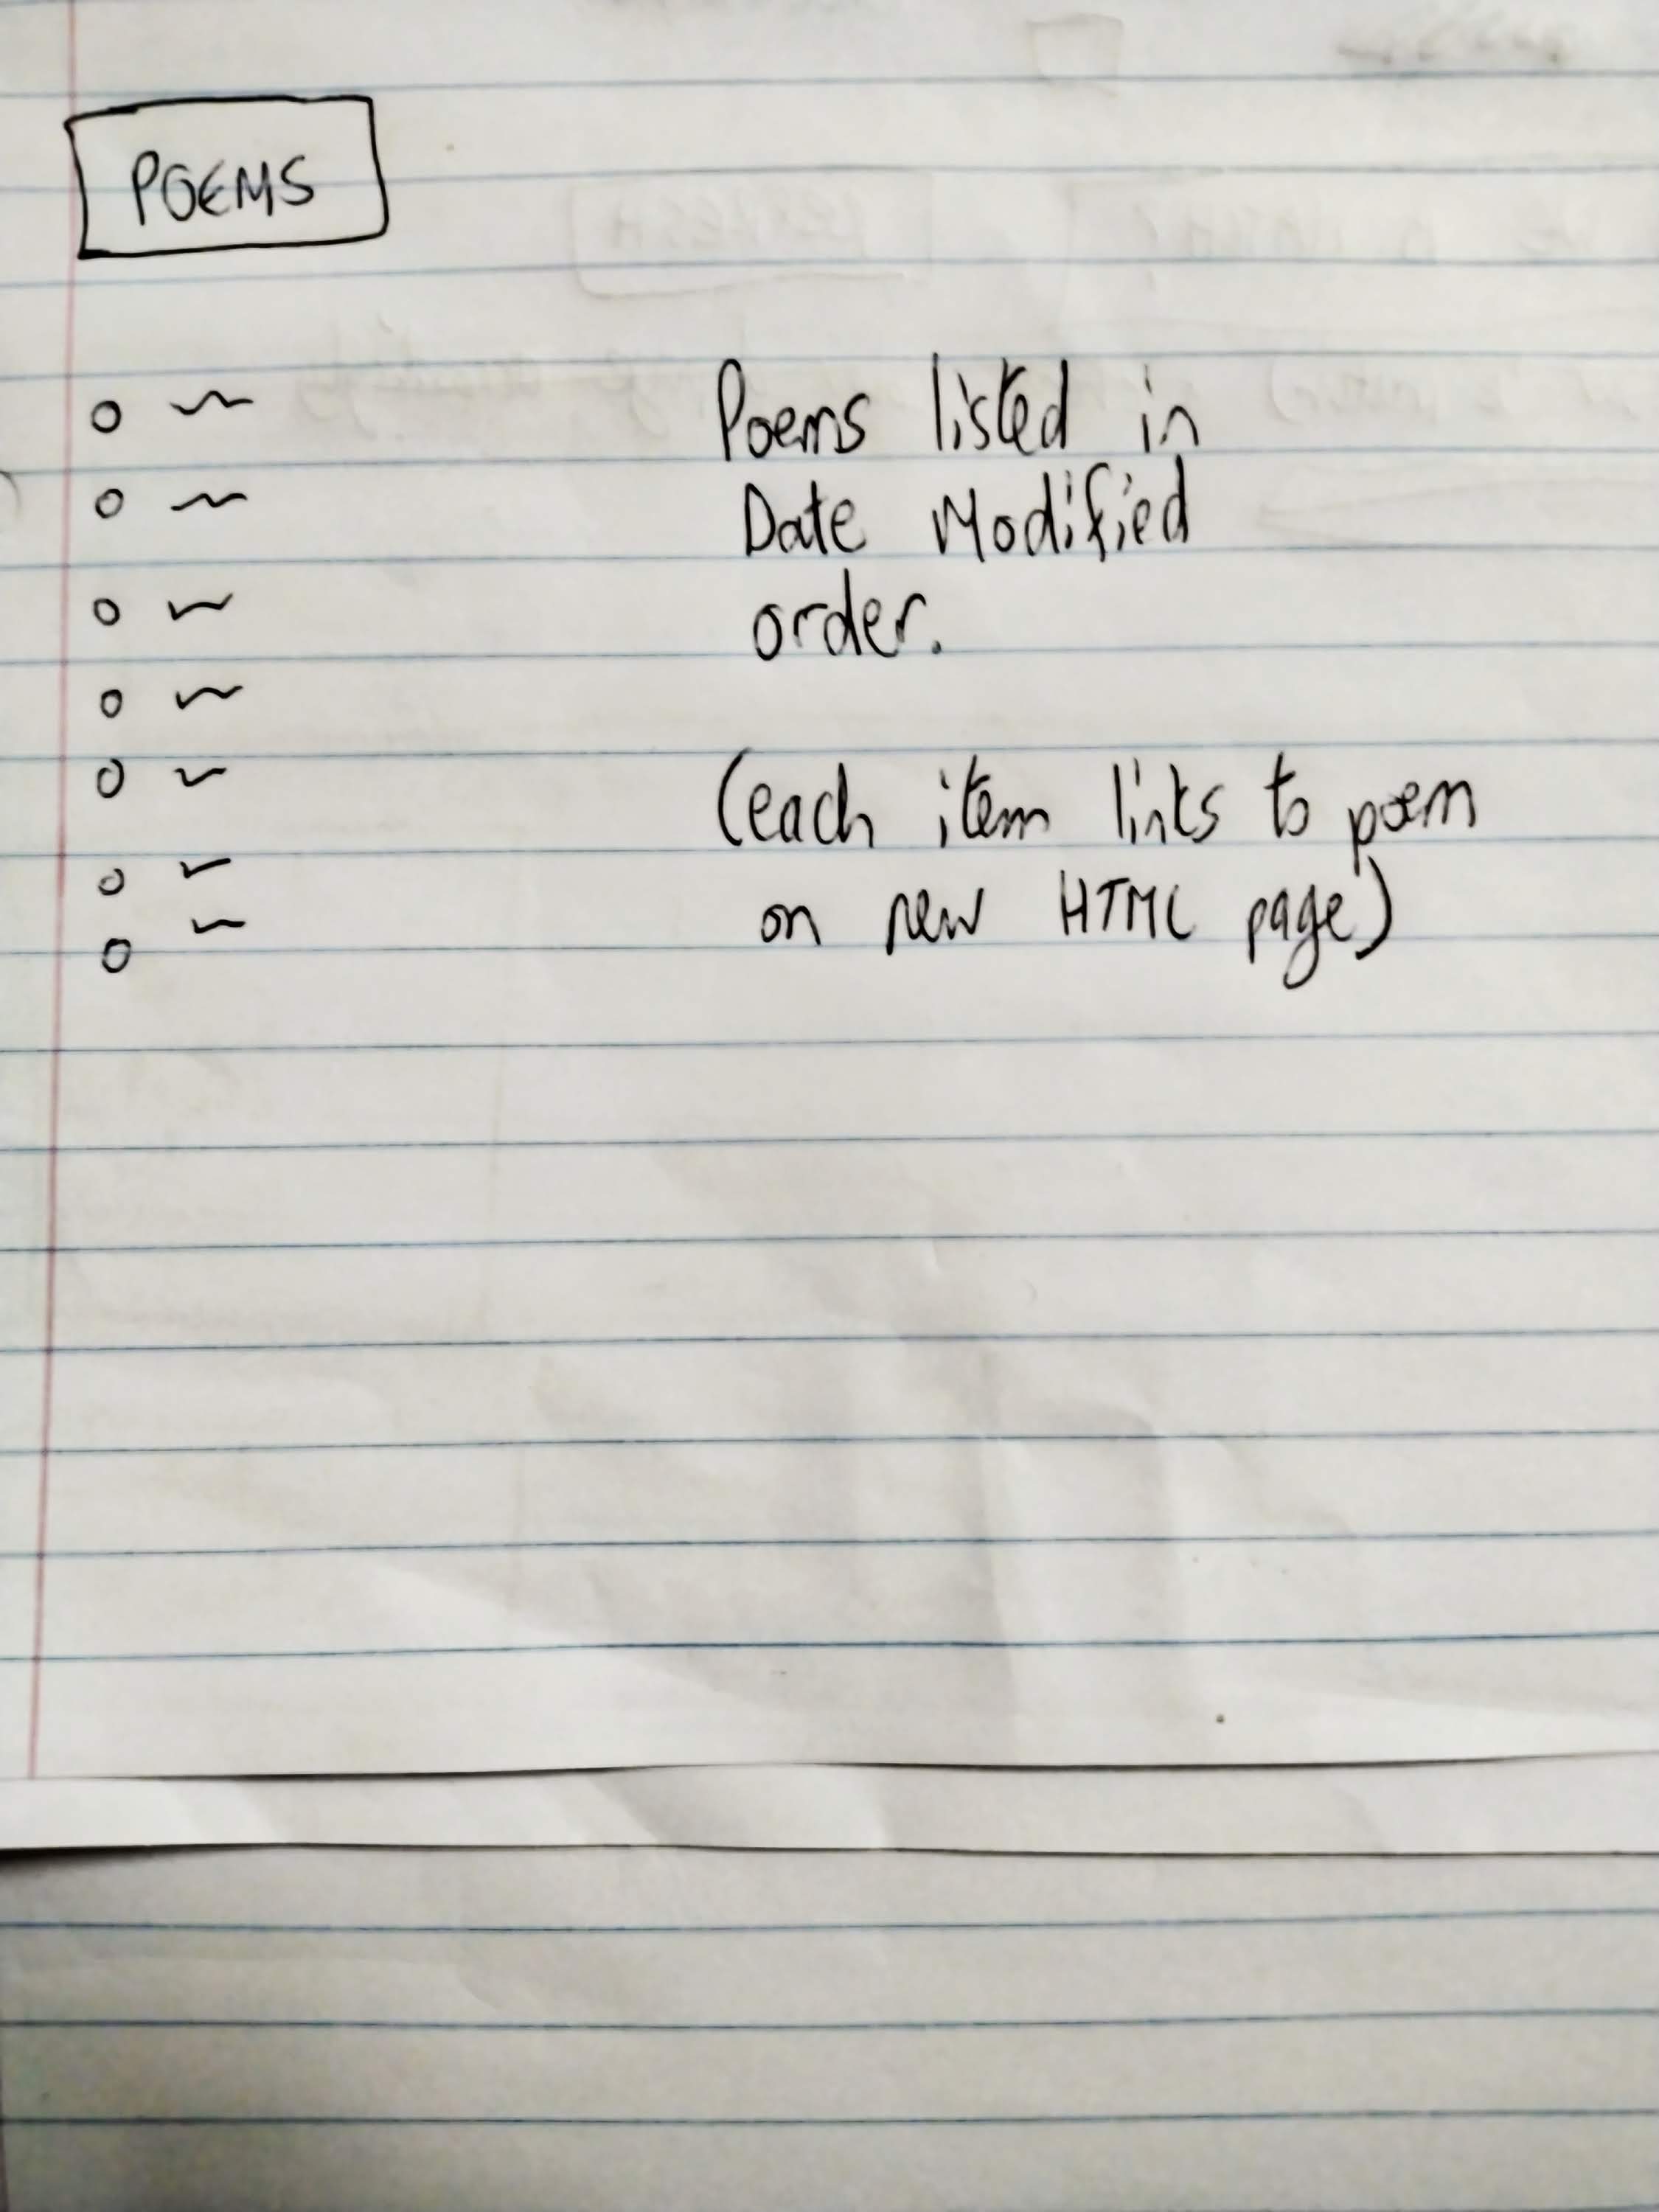 POEMS
Poems listed in
Date Modified
order.
(each item links to poem
on new HTML page)